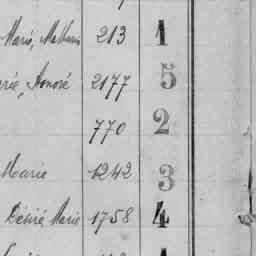 Marie, Mathurin 213 1
rie, Honoré 2177 5
770 2
Marie 1242 3
Désiré Marie 1758 4